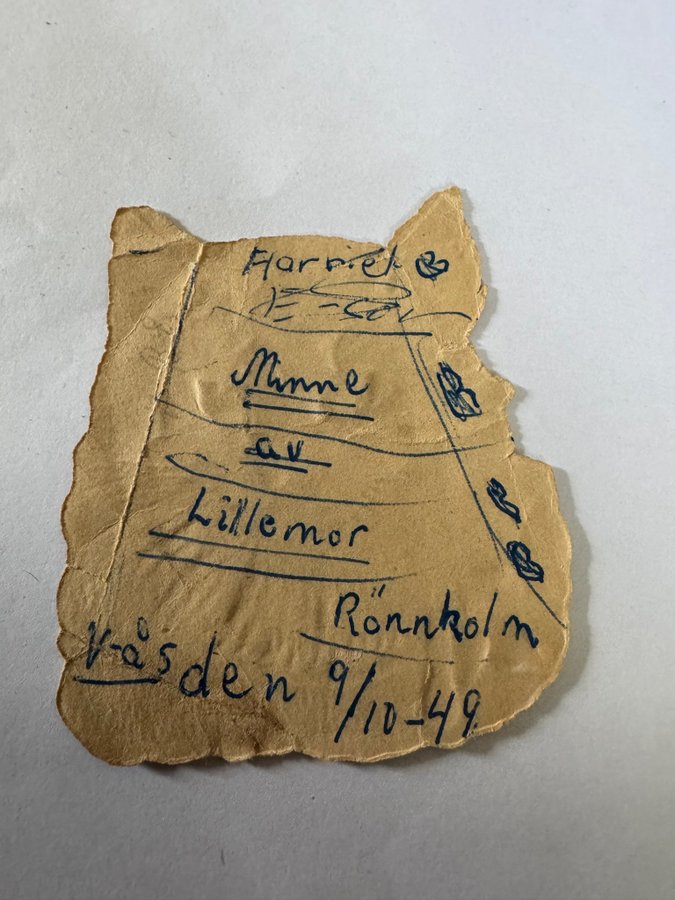 Harriet
Minne
av
Lillemor
Rönnholm
V-ås den 9/10-49.